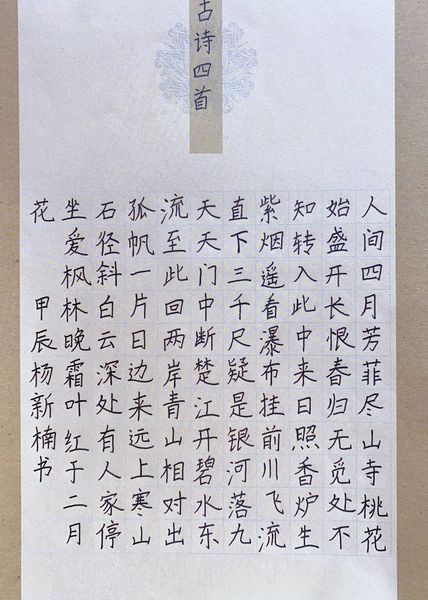 古诗四首
人间四月芳菲尽山寺桃花
始盛开长恨春归无觅处不
知转入此中来日照香炉生
紫烟遥看瀑布挂前川飞流
直下三千尺疑是银河落九
天天门中断楚江开碧水东
流至此回两岸青山相对出
孤帆一片日边来远上寒山
石径斜白云深处有人家停
坐爱枫林晚霜叶红于二月
花 甲辰杨新楠书